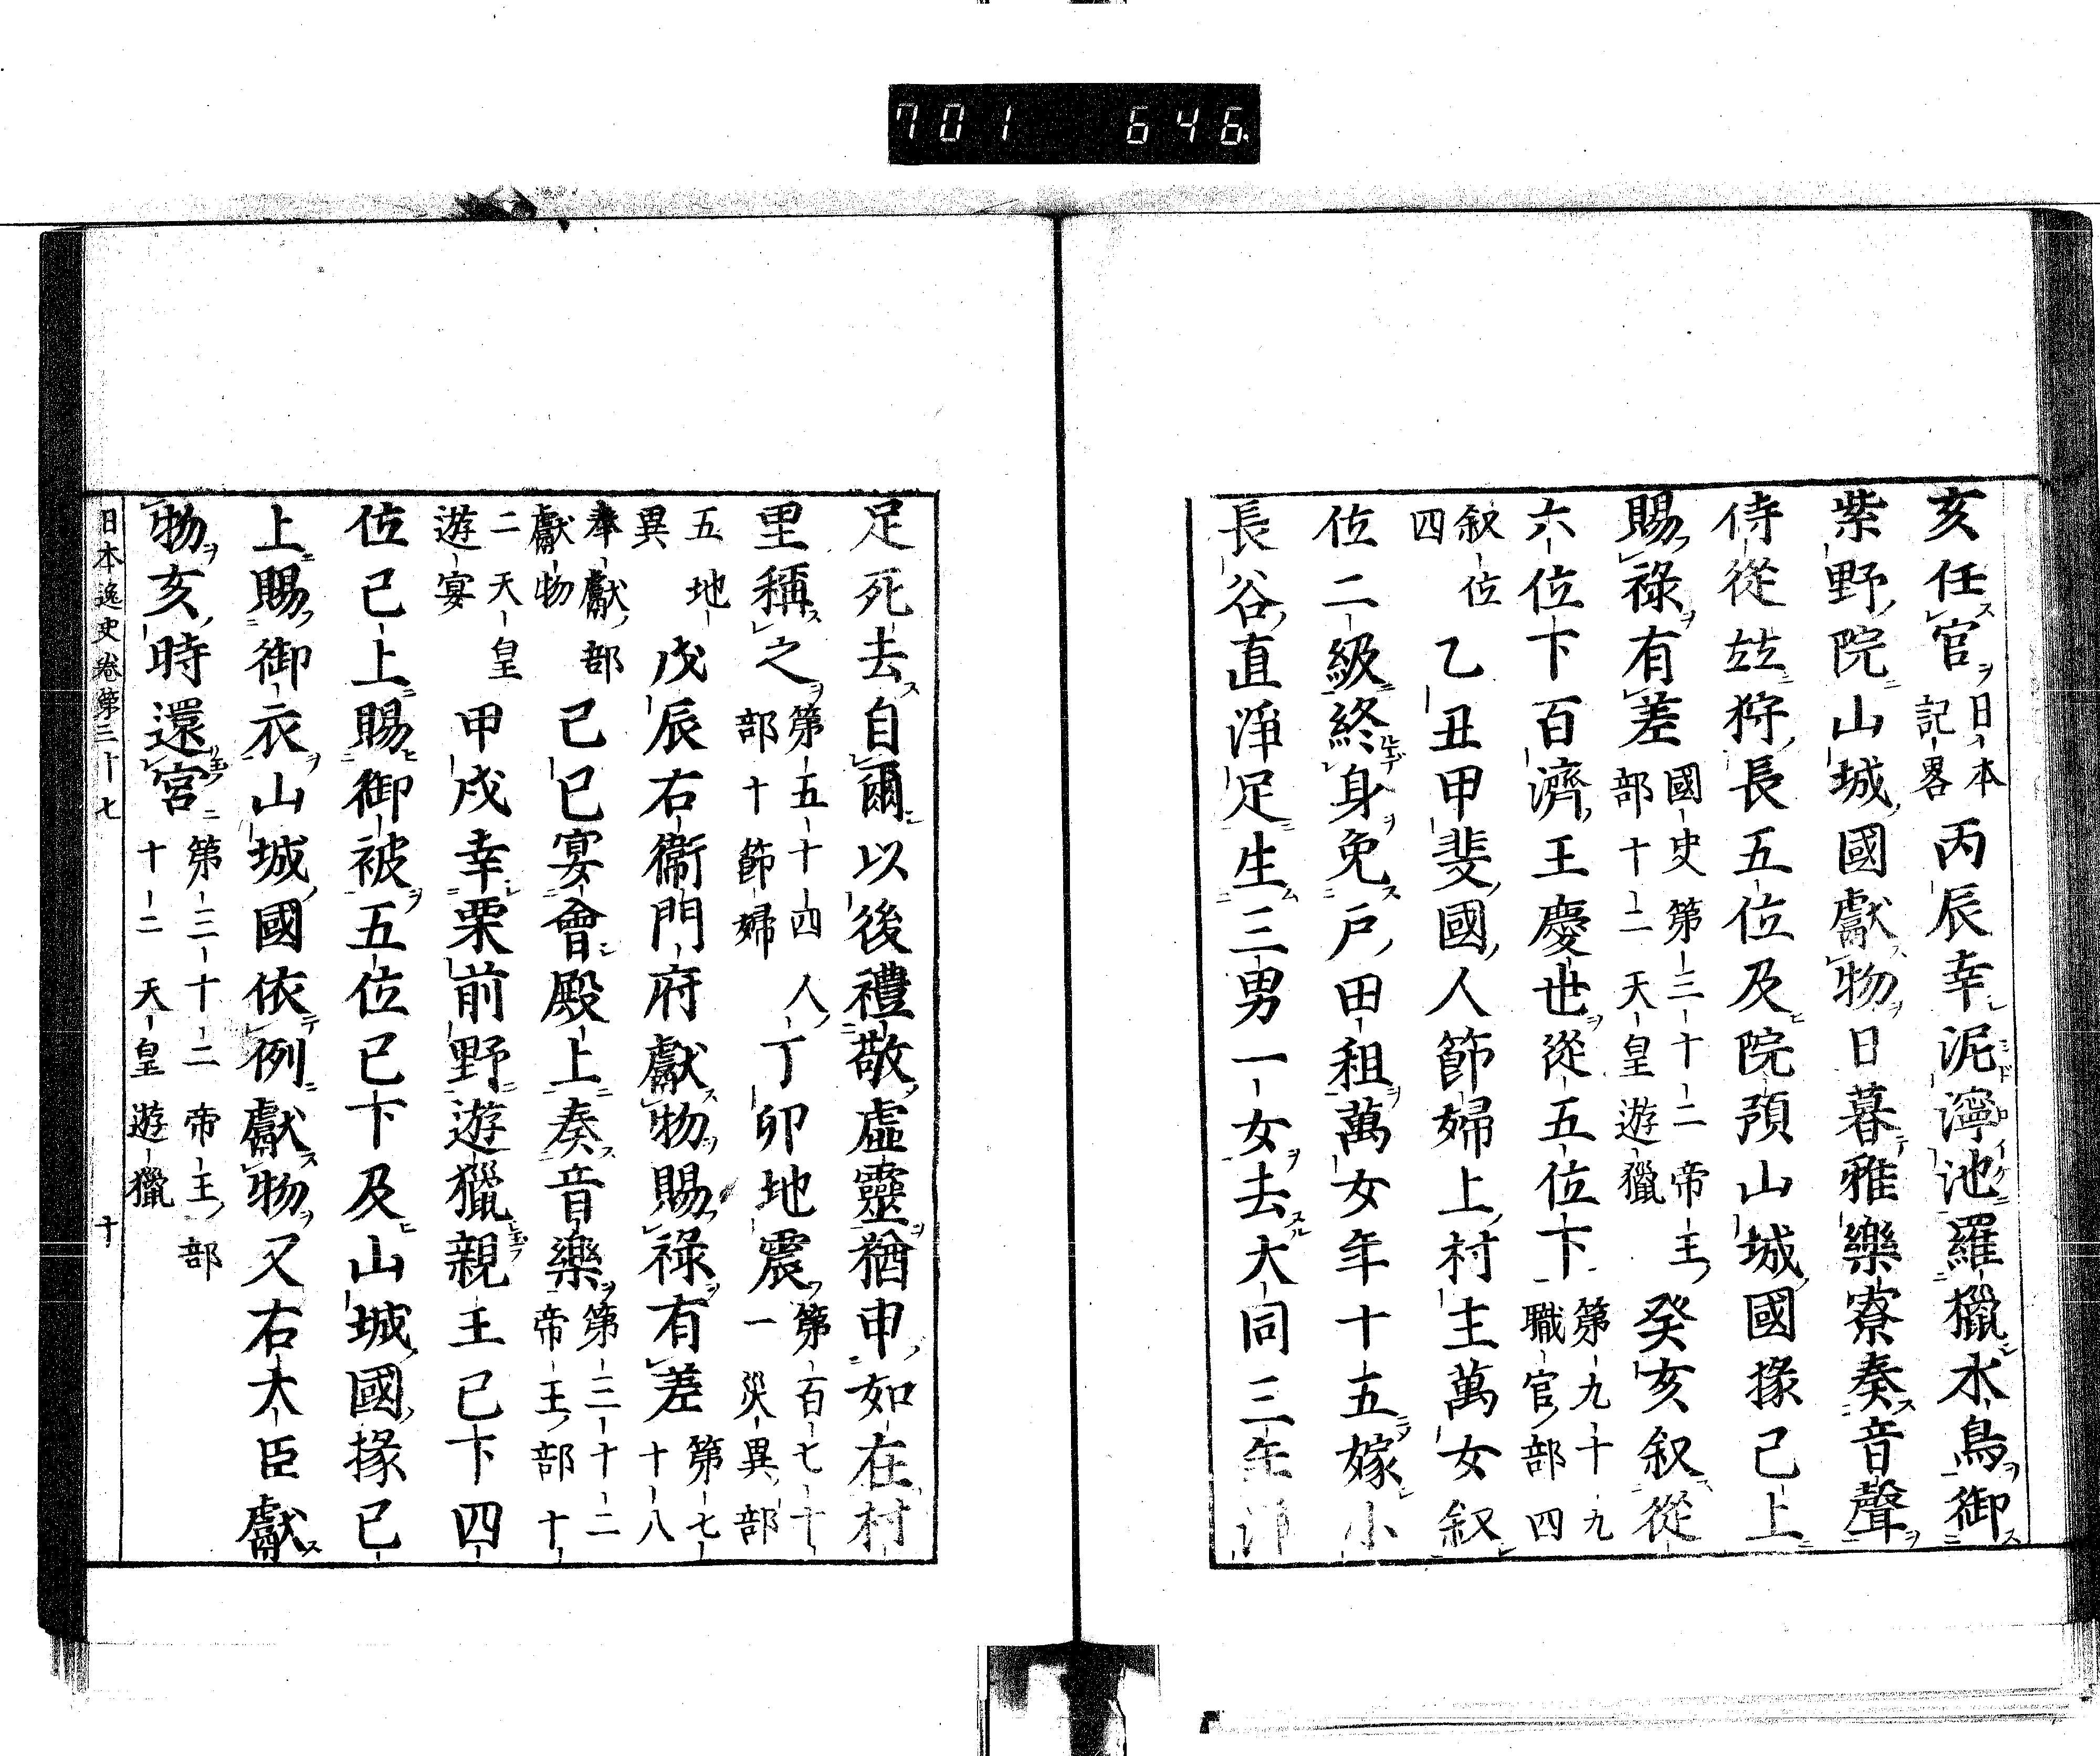 701 646
亥任官日本記畧丙辰幸泥濘池羅獵水鳥御
紫野院山城國獻物日暮雅樂寮奏音聲
侍從玆狩長五位及院預山城國掾已上
賜祿有差國史第三十二帝王部十二天皇遊獵癸亥叙從
六位下百濟王慶世從五位下第九十九職官部四
叙位四乙丑甲斐國人節婦上村主萬女叙
位二級終身免戶田租萬女年十五嫁小
長谷直淨足生三男一女去大同三年淨
足死去自爾以後禮敬虛靈猶申如在村
里稱之第五十四人部十節婦丁卯地震第百七十一災異部
五地異戊辰右衞門府獻物賜祿有差第七十八
奉獻部獻物己巳宴會殿上奏音樂第三十二帝王部十
二天皇遊宴甲戌幸栗前野遊獵親王已下四
位已上賜御被五位已下及山城國掾已
上賜御衣山城國依例獻物又右大臣獻
物亥時還宮第三十二帝王部十二天皇遊獵
日本逸史卷第三十七 十